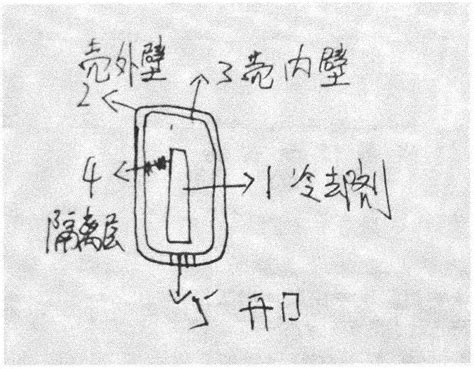 壳外壁
2
3壳内壁
4
1冷却剂
隔离层
5 开门